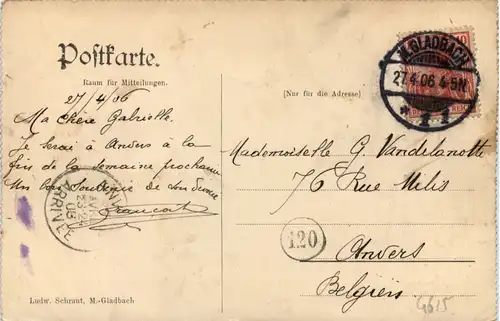 Postkarte.
Raum für Mitteilungen.
[Nur für die Adresse]
M. GLADBACH
27.4.06 4-5N
27/4/06
Ma Chère Gabrielle.
Je serai à Anvers à la
fin de la semaine prochaine
Un bon Souvenir de
ARRIVÉE
Mademoiselle G. Vandelanotte
76 Rue
120
Anvers
Belgien
Ludw. Schrant, M.-Gladbach
4615